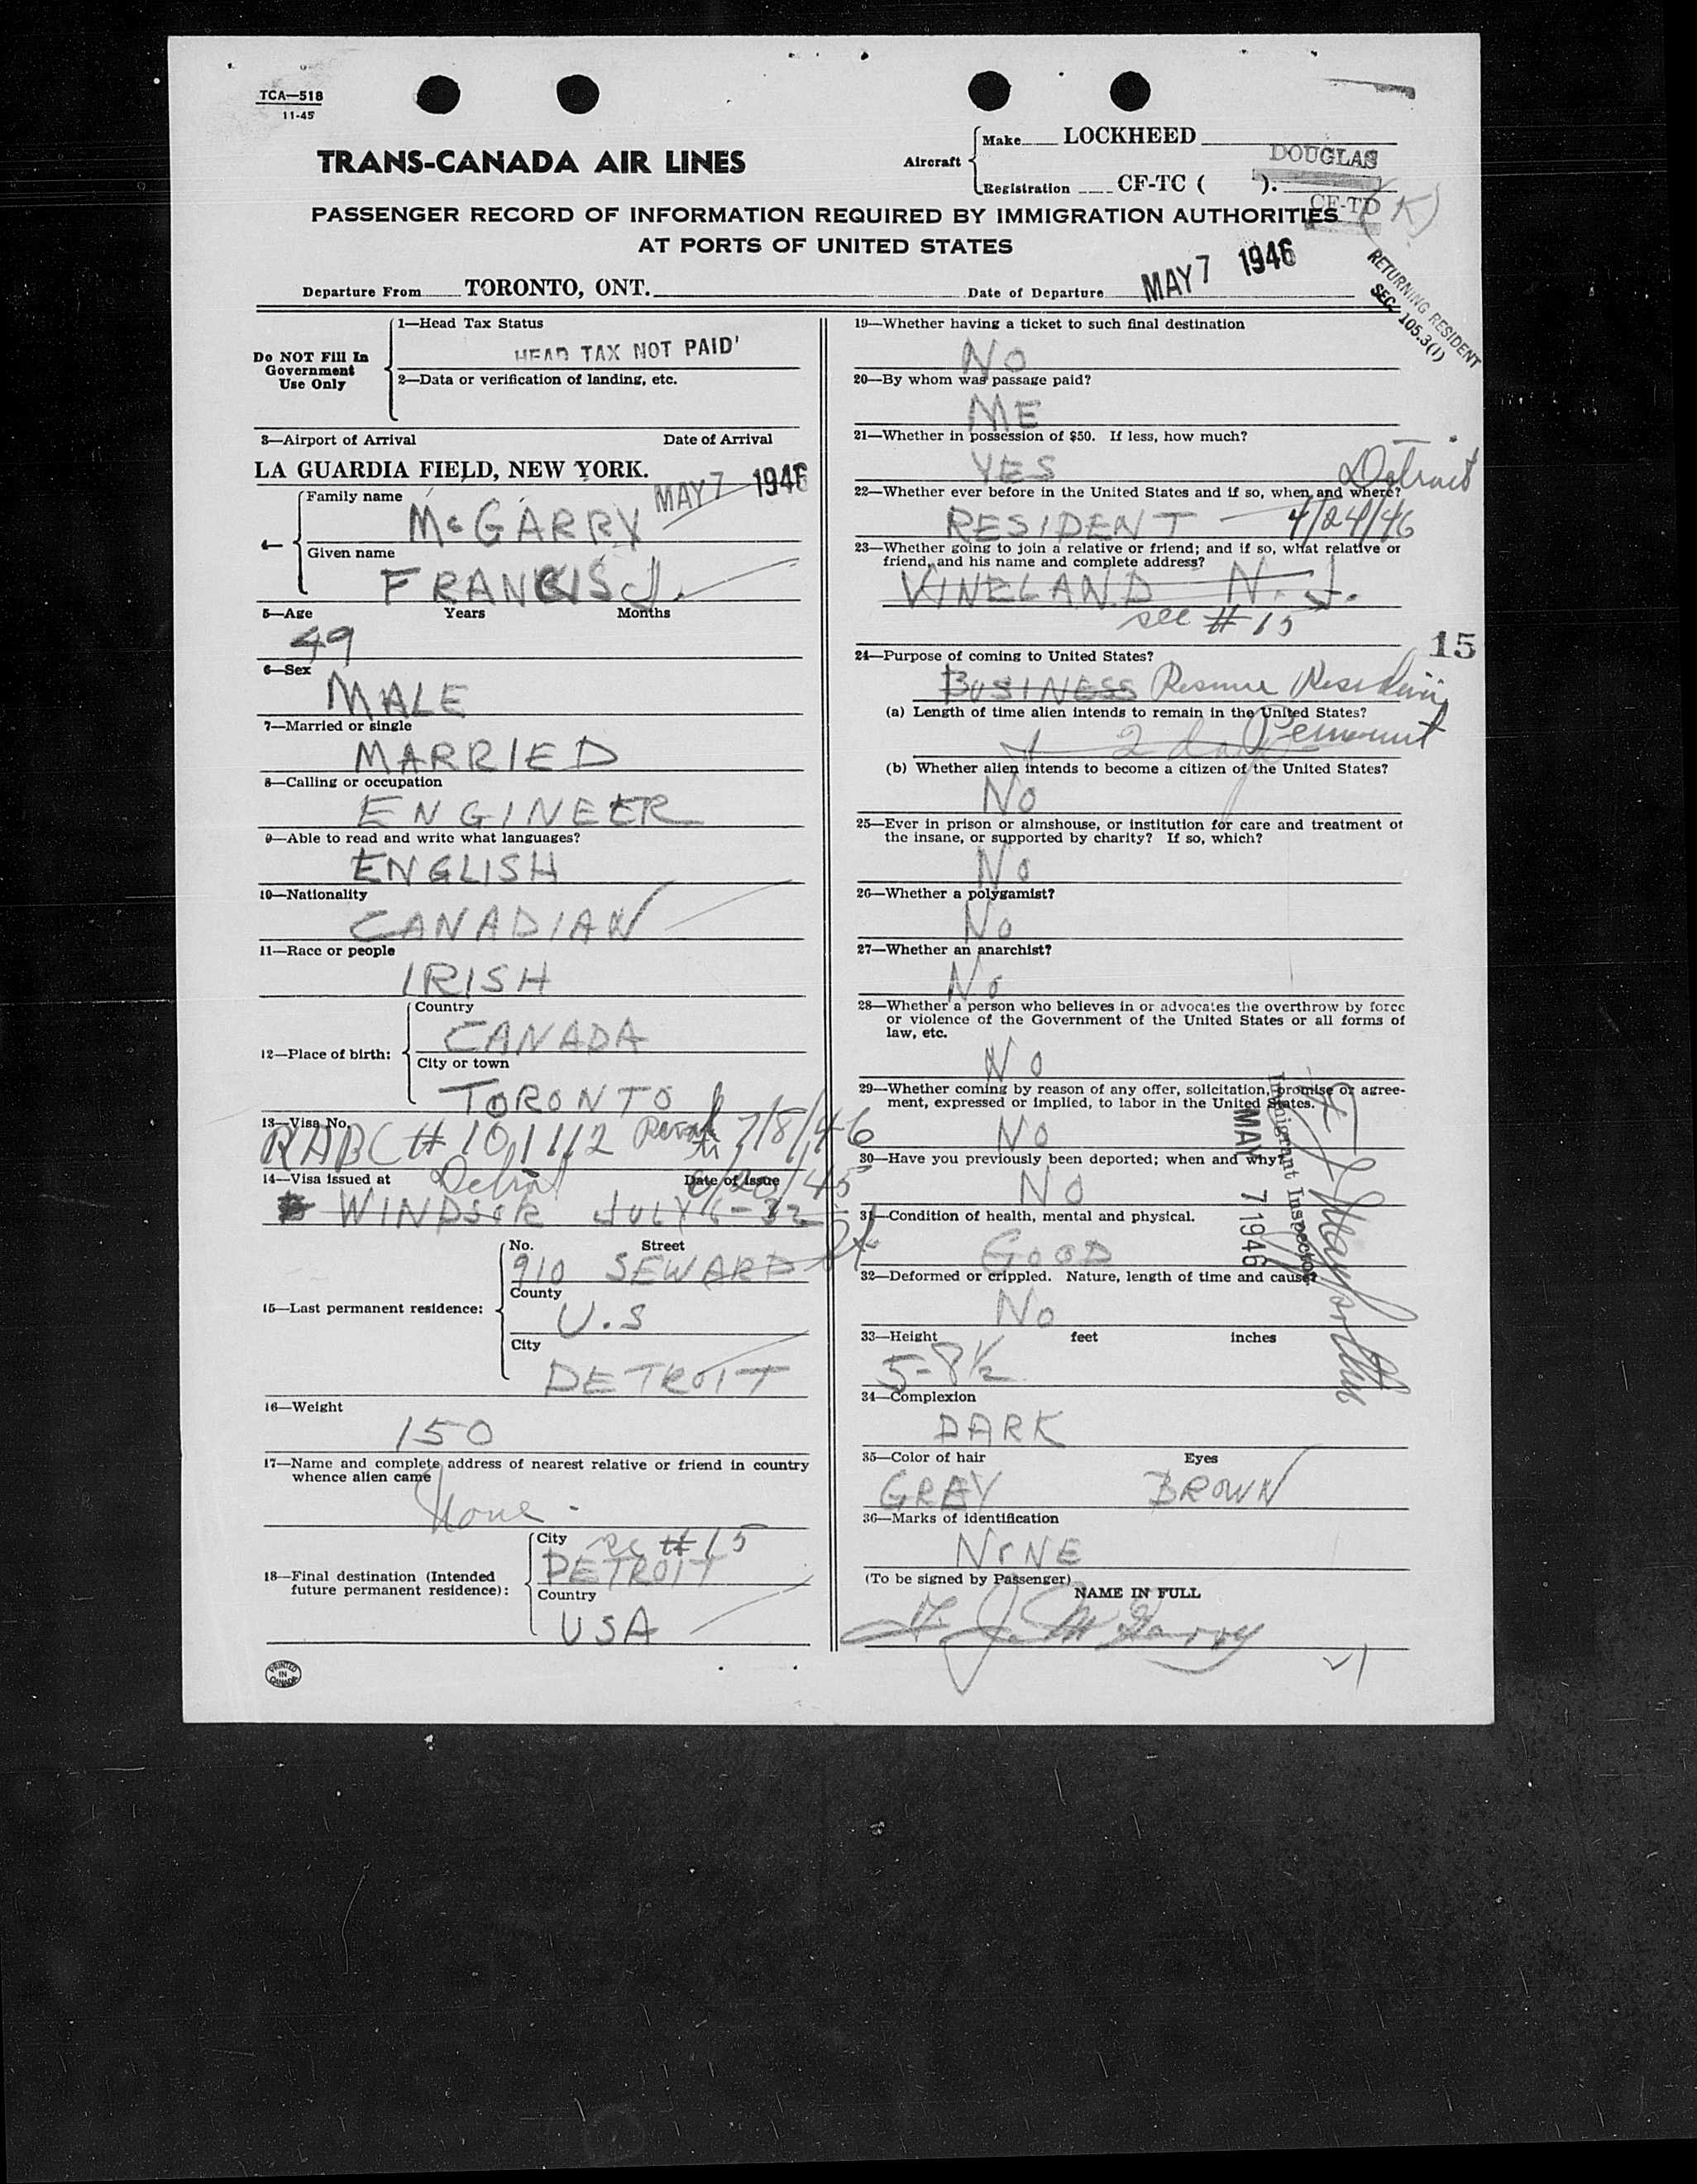 TCA—518
11-45
TRANS-CANADA AIR LINES
Aircraft
Make LOCKHEED
DOUGLAS
Registration CF-TC ( ).
CF-TD (K)
PASSENGER RECORD OF INFORMATION REQUIRED BY IMMIGRATION AUTHORITIES
AT PORTS OF UNITED STATES
Departure From TORONTO, ONT. Date of Departure MAY 7 1946
RETURNING RESIDENT
SEC. 105.3(1)
Do NOT Fill In
Government
Use Only
1—Head Tax Status
HEAD TAX NOT PAID
2—Data or verification of landing, etc.
3—Airport of Arrival Date of Arrival
LA GUARDIA FIELD, NEW YORK.
MAY 7 1946
4—
Family name
McGARRY
Given name
FRANCIS J.
5—Age Years Months
49
6—Sex
MALE
7—Married or single
MARRIED
8—Calling or occupation
ENGINEER
9—Able to read and write what languages?
ENGLISH
10—Nationality
CANADIAN
11—Race or people
IRISH
12—Place of birth:
Country
CANADA
City or town
TORONTO
13—Visa No.
RABC # 101112 7/8/46
14—Visa issued at Detroit Date of Issue /20/45
WINDSOR JULY 6-32
15—Last permanent residence:
No. Street
910 SEWARD
County
U.S
City
DETROIT
16—Weight
150
17—Name and complete address of nearest relative or friend in country
whence alien came
None -
18—Final destination (Intended
future permanent residence):
City # 15
DETROIT
Country
USA
PRINTED
IN
CANADA
19—Whether having a ticket to such final destination
NO
20—By whom was passage paid?
ME
21—Whether in possession of $50. If less, how much?
YES
Detroit
22—Whether ever before in the United States and if so, when and where?
RESIDENT — 4/24/46
23—Whether going to join a relative or friend; and if so, what relative or
friend, and his name and complete address?
VINELAND N.J.
see # 15
15
24—Purpose of coming to United States?
BUSINESS Resume Residence
(a) Length of time alien intends to remain in the United States?
2 days Permanent
(b) Whether alien intends to become a citizen of the United States?
NO
25—Ever in prison or almshouse, or institution for care and treatment of
the insane, or supported by charity? If so, which?
NO
26—Whether a polygamist?
NO
27—Whether an anarchist?
NO
28—Whether a person who believes in or advocates the overthrow by force
or violence of the Government of the United States or all forms of
law, etc.
NO
29—Whether coming by reason of any offer, solicitation, promise or agree-
ment, expressed or implied, to labor in the United States.
NO
30—Have you previously been deported; when and why?
NO
MAY 7 1946
Immigrant Inspector
31—Condition of health, mental and physical.
GOOD
32—Deformed or crippled. Nature, length of time and cause?
NO
33—Height feet inches
5-8½
34—Complexion
DARK
35—Color of hair Eyes
GREY BROWN
36—Marks of identification
NONE
(To be signed by Passenger)
NAME IN FULL
F. J. McGarry